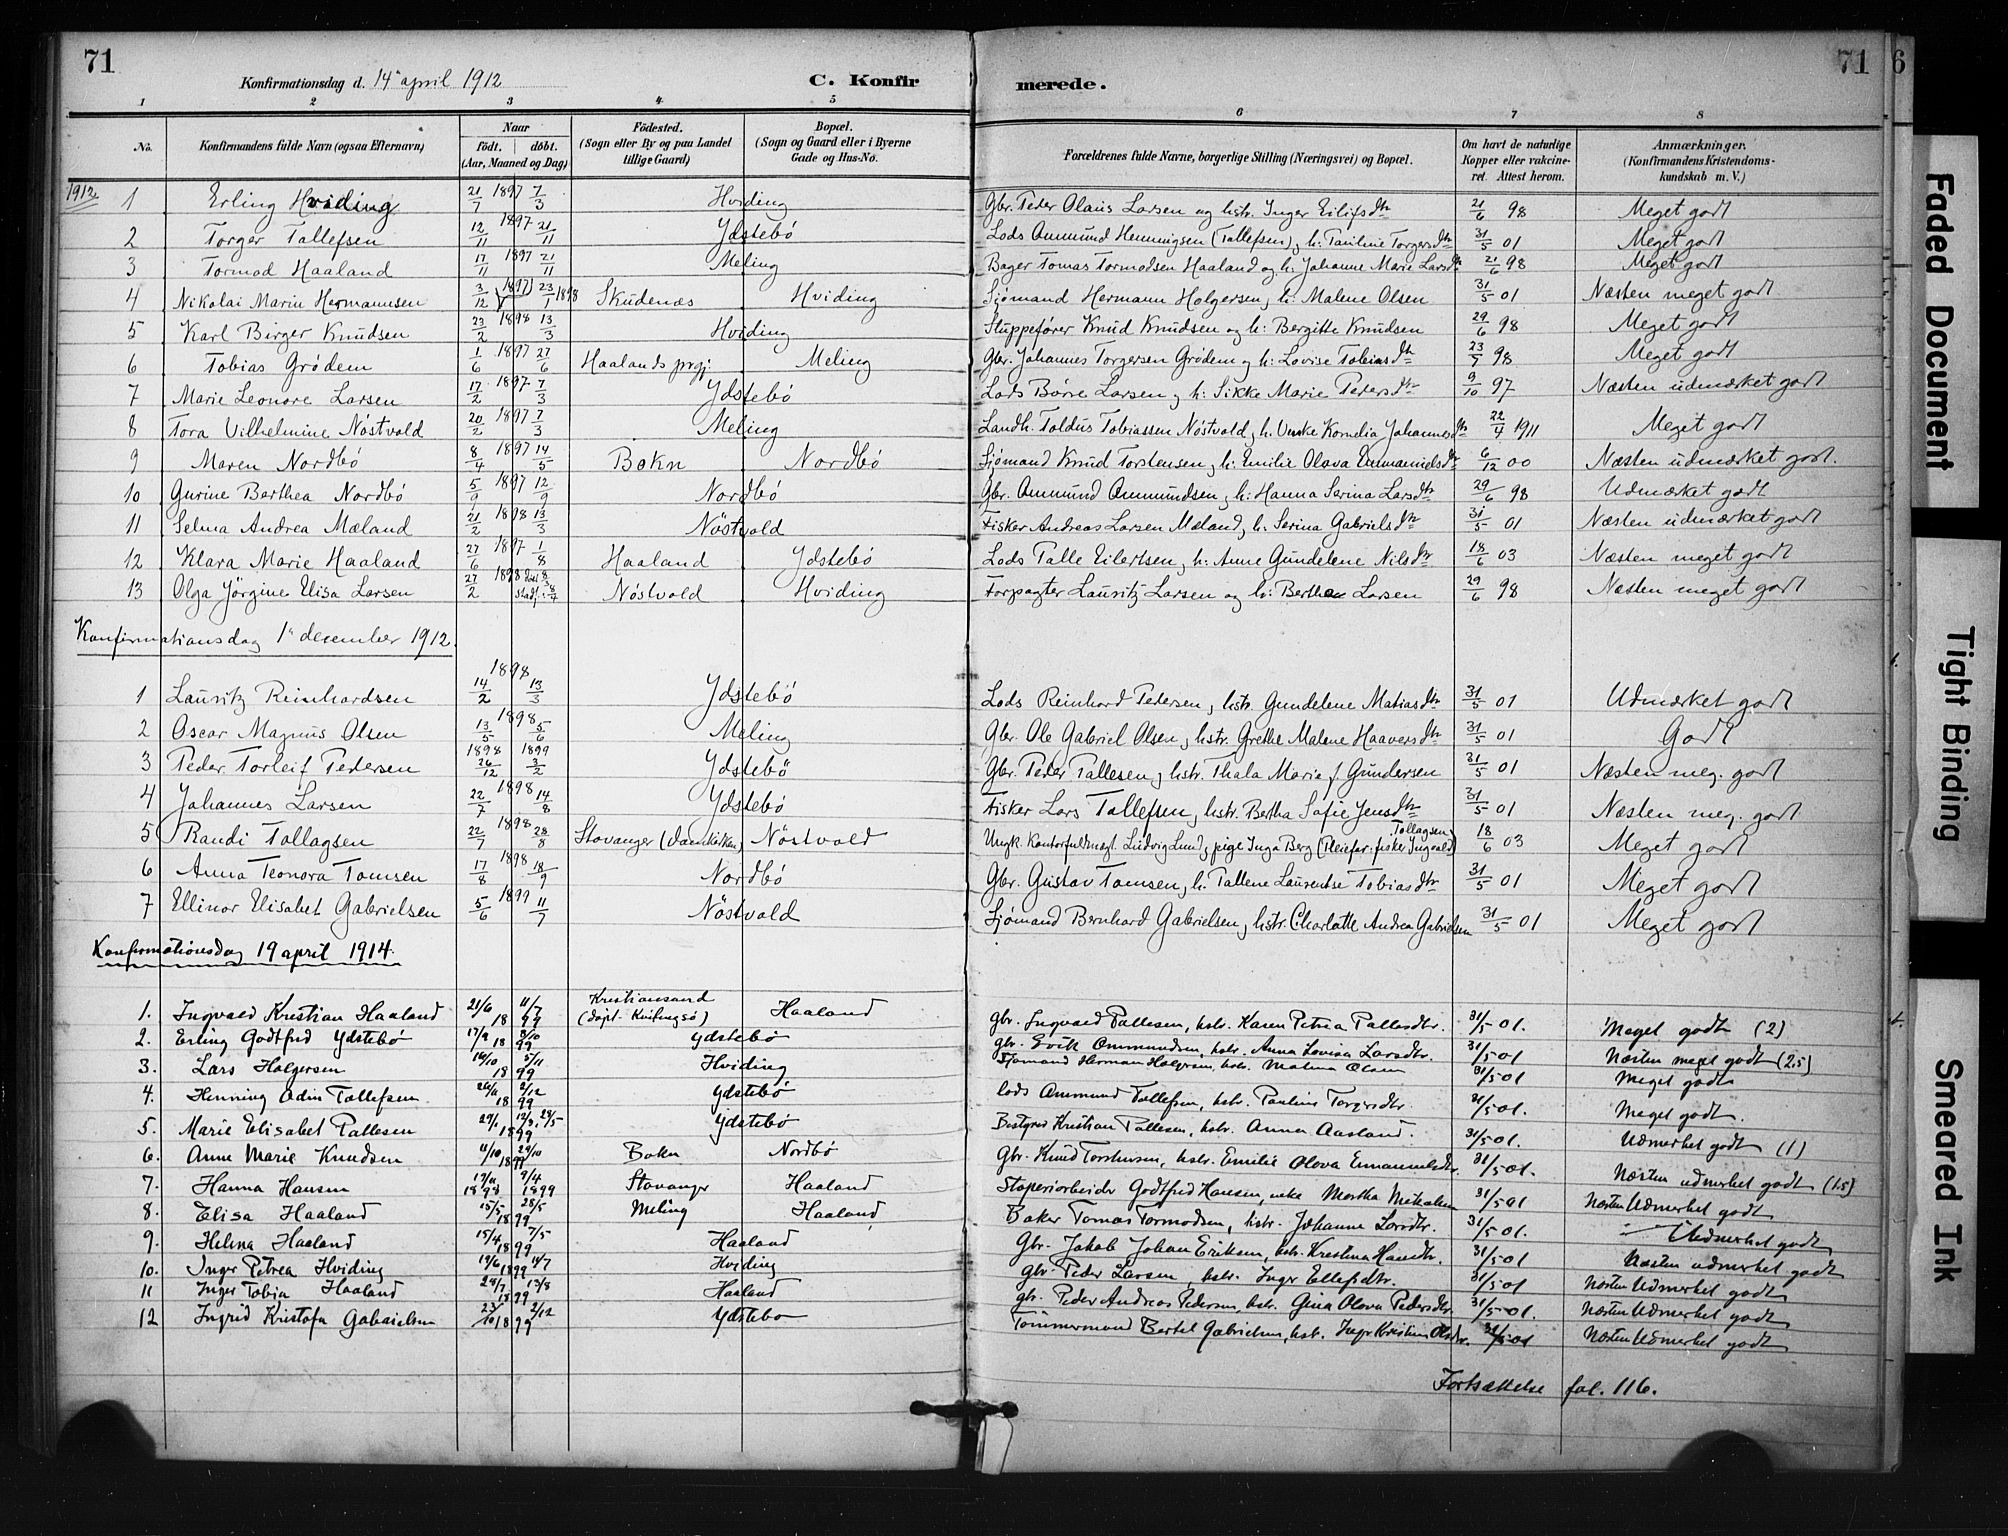 71
Konfirmationsdag d. 14 april 1912
C. Konfirmerede.
71
6
1 2 3 4 5 6 7 8
No. | Konfirmandens fulde Navn (ogsaa Efternavn) | Naar født. døbt. (Aar, Maaned og Dag) | Fødested. (Sogn eller By og paa Landet tillige Gaard) | Bopæl. (Sogn og Gaard eller i Byerne Gade og Hus-No. | Forældrenes fulde Navne, borgerlige Stilling (Næringsvei) og Bopæl. | Om havt de naturlige Kopper eller vakcineret. Attest herom. | Anmærkninger. (Konfirmandens Kristendomskundskab m. V.)
1912
1 Erling Hviding 21/7 1897 7/3 Hviding Gbr. Peder Olaus Larsen og hstr. Inger Eilifsdtr 21/6 98 Meget godt
2 Torger Tallefsen 12/11 1897 21/11 Ydstebö Lods Ommund Henningsen (Tallefsen) og h: Pauline Torgersdtr 31/5 01 Meget godt
3 Tormod Haaland 17/11 1897 21/11 Meling Bager Tomas Tormodsen Haaland og h. Johanne Marie Larsdtr 21/6 98 Meget godt
4 Nikolai Marin Hermannsen 3/12 1897 23/1 1898 Skudenæs Hviding Sjömand Hermann Holgersen og h: Malene Olsen 31/5 01 Næsten meget godt
5 Karl Birger Knudsen 23/2 1898 13/3 Hviding Sluppefører Knud Knudsen og h: Bergitte Knudsen 29/6 98 Meget godt
6 Tobias Grödem 1/6 1897 27/6 Haalands prgj. Meling Gbr. Johannes Torgersen Grödem og h: Lovise Tobiasdtr 23/7 98 Meget godt
7 Marie Leonore Larsen 17/2 1897 7/3 Ydstebö Lods Böre Larsen og h: Sikke Marie Pedersdtr 9/10 97 Næsten udmærket godt
8 Tora Vilhelmine Nöstvold 20/2 1897 7/3 Meling Landh. Toldus Tobiassen Nöstvold og h. Unke Kornelia Johannesdtr 22/4 1911 Meget godt
9 Maren Nordbö 8/4 1897 14/5 Bokn Nordbö Sjömand Knud Torstensen og h: Emilie Olava Emmanuelsdtr 6/12 00 Næsten udmærket godt.
10 Gurine Berthea Nordbö 5/9 1897 12/9 Nordbö Gbr. Ommund Ommundsen og h: Hanna Serina Larsdtr 29/6 98 Udmærket godt
11 Selma Andrea Mæland 21/2 1898 13/3 Nöstvold Fisker Andreas Larsen Mæland og h: Serina Gabrielsdtr 31/5 01 Næsten udmærket godt
12 Klara Marie Haaland 27/6 1897 1/8 Haaland Ydstebö Lods Palle Eilertsen og h: Anne Gundelene Nilsdtr 18/6 03 Næsten meget godt
13 Olga Jörgine Elisa Larsen 27/2 1898 8/3 stadf. 8/4 Nöstvold Hviding Forpagter Lauritz Larsen og h: Berthe Larsen 29/6 98 Næsten meget godt
Konfirmationsdag 1 december 1912.
1 Lauritz Reinhardsen 14/2 1898 13/3 Ydstebö Lods Reinhard Pedersen og hstr. Gundelene Matiasdtr 31/5 01 Udmærket godt
2 Oscar Magnus Olsen 13/5 1898 5/6 Meling Gbr. Ole Gabriel Olsen og hstr. Grethe Malene Haaversdtr 31/5 01 Godt
3 Peder Torleif Pedersen 26/12 1898 3/2 1899 Ydstebö Gbr. Peder Pallesen og hstr. Thala Marie f. Gundersen 31/5 01 Næsten meg. godt
4 Johannes Larsen 22/7 1898 14/8 Ydstebö Fisker Lars Tallefsen og hstr. Bertha Sofie Jensdtr 31/5 01 Næsten meg. godt
5 Randi Tollagsen 22/7 1898 28/8 Stavanger (domkirken) Nöstvold Ungk. Kontorfuldmægt. Ludvig Lund og pige Inga Berg (Pleiefar: fisker Ingvald Tollagsen) 18/6 03 Meget godt
6 Anna Teonora Tomsen 17/8 1898 18/9 Nordbö Gbr. Gustav Tomsen og h. Tallene Laurentse Tobiasdtr 31/5 01 Meget godt
7 Ellinor Elisabet Gabrielsen 5/6 1899 11/7 Nöstvold Sjömand Bernhard Gabrielsen og hstr. Charlotte Andrea Gabrielsen 31/5 01 Meget godt
Konfirmationsdag 19 april 1914.
1. Ingvald Kristian Haaland 21/6 11/7 1899 Kristiansand (döpt. Kvitingsö) Haaland gbr. Ingvald Pallesen, hstr. Karen Petria Pallesdtr. 31/5 01. Meget godt (2)
2. Erling Godtfred Ydstebö 17/9 8/10 1899 Ydstebö gbr. Erik Ommundsen, hstr. Anna Lovisa Larsdtr. 31/5 01 Næsten meget godt (2.5)
3. Lars Holgersen 16/10 5/11 1899 Hviding Sjömand Herman Holgersen, hstr. Malena Olsen 31/5 01 Meget godt
4. Henning Odin Tallefsen 26/11 2/12 1899 Ydstebö Lods Ommund Tallefsen, hstr. Pauline Torgersdtr. 31/5 01. Meget godt.
5. Marie Elisabet Pallesen 29/1 12/3, 28/5 1899 Ydstebö Bestyrer Kristian Pallesen, hstr. Anna Aasland. 31/5 01. Udmerket godt (1)
6. Anne Marie Knudsen 11/10 29/10 1899 Bokn Nordbö Gbr. Knud Torstensen, hstr. Emilie Olava Emanuelsdtr. 31/5 01. Næsten udmerket godt (1.5)
7. Hanna Hansen 17/11 1898 9/4 1899 Stavanger Haaland Støperiarbeider Godtfred Hansen, enke Martha Mikalsen 31/5 01 Næsten Udmerket godt
8. Elisa Haaland 15/5 28/5 1899 Meling Haaland Baker Tomas Tormodsen, hstr. Johanne Larsdtr. 31/5 01. Udmerket godt
9. Helma Haaland 15/4 7/5 1899 Haaland Gbr. Jakob Johan Eriksen, hstr. Kristina Hansdtr. 31/5 01 Næsten udmerket godt
10. Inger Petrea Hviding 19/6 16/7 1899 Hviding gbr. Peder Larsen, hstr. Inger Ellefsdtr. 31/5 01 Næsten Udmerket godt
11 Inger Tobia Haaland 24/7 13/8 1899 Haaland gbr. Peder Andreas Pedersen, hstr. Gina Olava Pedersdtr. 31/5 01. Næsten Udmerket godt
12 Ingrid Kristofa Gabrielsen 23/10 2/12 1899 Ydstebo Tömmermand Bertel Gabrielsen, hstr. Inger Kristine Olsdtr. 31/5 01 Næsten Udmerket godt
Fortsættelse fol. 116.
Faded Document
Tight Binding
Smeared Ink